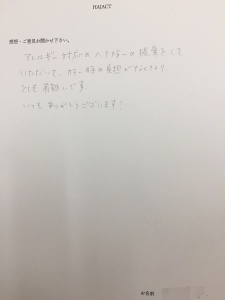 HAIACT
感想・ご意見お聞かせ下さい。
アレルギー対応のヘアカラーの提案をして
いただいて、カラー時の負担がなくなり
とても有難いです。
いつもありがとうございます!
お名前